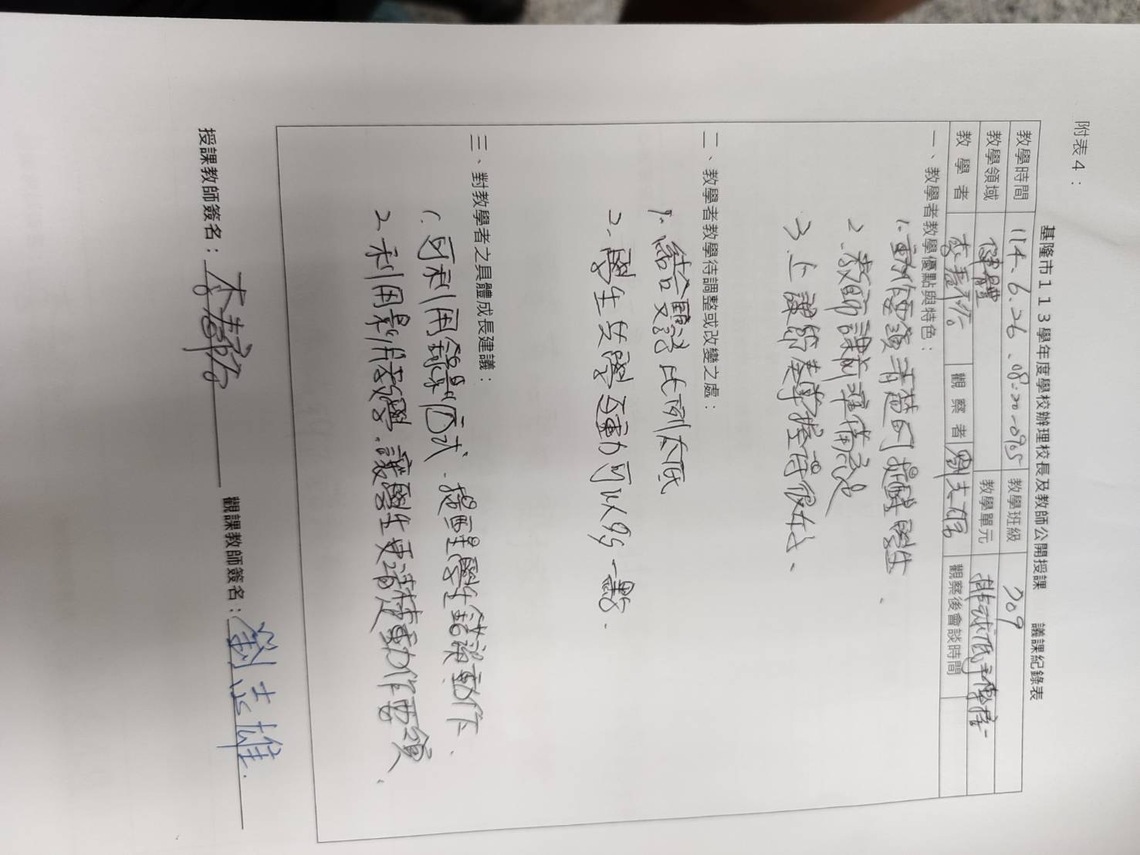 附表4：
基隆市113學年度學校辦理校長及教師公開授課 議課紀錄表
教學時間 114.6.26.08-20-0905 教學班級 709
教學領域 健體 教學單元 排球低手傳接
教學者 觀察者 劉志雄 觀察後會談時間
一、教學者教學優點與特色：
1. 動作要領清楚可提醒學生.
2. 教師課前準備充足
3. 上課節奏掌握得很好、
二、教學者教學待調整或改變之處：
1. 結合雙語比例太低
2. 學生女學運動可以多一點.
三、對教學者之具體成長建議：
1. 可利用錄影方式.提醒學生錯誤動作.
2. 利用影片教學.讓學生更清楚動作要領.
授課教師簽名： 觀課教師簽名：劉志雄.